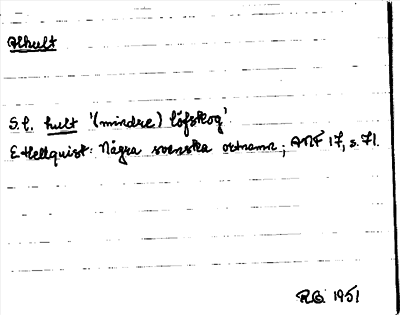 Alhult
S.l. hult '(mindre) löfskog'.
E Hellquist: Några svenska ortnamn; ANF 17, s. 71.
R.G. 1951